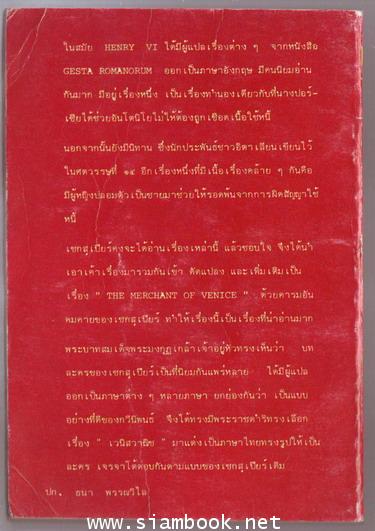 ในสมัย HENRY VI ได้มีผู้แปลเรื่องต่าง ๆ จากหนังสือ
GESTA ROMANORUM ออกเป็นภาษาอังกฤษ มีคนนิยมอ่าน
กันมาก มีอยู่เรื่องหนึ่ง เป็นเรื่องทำนองเดียวกับที่นางปอร์-
เซียได้ช่วยอันโตนิโยไม่ให้ต้องถูกเชือดเนื้อใช้หนี้
นอกจากนั้นยังมีนิทาน ซึ่งนักประพันธ์ชาวอิตาเลียนเขียนไว้
ในศตวรรษที่ ๑๔ อีกเรื่องหนึ่งที่มีเนื้อเรื่องคล้าย ๆ กันคือ
มีผู้หญิงปลอมตัวเป็นชายมาช่วยให้รอดพ้นจากการผิดสัญญาใช้
หนี้
เชกสเปียร์คงจะได้อ่านเรื่องเหล่านี้ แล้วชอบใจ จึงได้นำ
เอาเค้าเรื่องมารวมกันเข้า ดัดแปลง และเพิ่มเติมเป็น
เรื่อง " THE MERCHANT OF VENICE " ด้วยคารมอัน
คมคายของเชกสเปียร์ ทำให้เรื่องนี้เป็นเรื่องที่น่าอ่านมาก
พระบาทสมเด็จพระมงกุฎเกล้าเจ้าอยู่หัวทรงเห็นว่า บท
ละครของเชกสเปียร์เป็นที่นิยมกันแพร่หลาย ได้มีผู้แปล
ออกเป็นภาษาต่าง ๆ หลายภาษา ยกย่องกันว่า เป็นแบบ
อย่างที่ดีของกวีนิพนธ์ จึงได้ทรงมีพระราชดำริทรงเลือก
เรื่อง " เวนิสวาณิช " มาแต่งเป็นภาษาไทยทรงรูปให้เป็น
ละคร เจรจาโต้ตอบกันตามแบบของเชกสเปียร์เดิม
ปก. ธนา พรรณวิไล
www.siambook.net